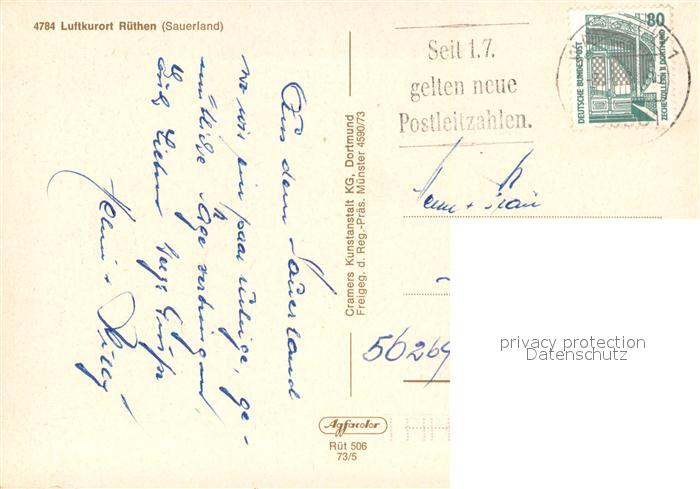 4784 Luftkurort Rüthen (Sauerland)
Aus dem Sauerland
wo wir ein paar ruhige, ge-
mütliche Tage verbringen,
Euch lieben
Cramers Kunstanstalt KG, Dortmund
Freigeg. d. Reg.-Präs. Münster 4590/73
Seit 1.7.
gelten neue
Postleitzahlen.
80
DEUTSCHE BUNDESPOST
ZECHE ZOLLERN II DORTMUND
Herrn + Frau
56269
privacy protection
Datenschutz
Agfacolor
Rüt 506
73/5